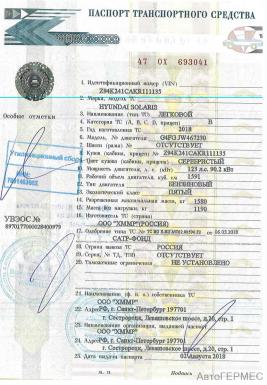 ПАСПОРТ ТРАНСПОРТНОГО СРЕДСТВА
47 ОХ 693041
1. Идентификационный номер (VIN)
Z94K241CAKR111135
2. Марка, модель ТС
HYUNDAI SOLARIS
Особые отметки
3. Наименование (тип ТС) ЛЕГКОВОЙ
4. Категория ТС (A, B, C, D, прицеп) B
5. Год изготовления ТС 2018
6. Модель, № двигателя G4FG JW467230
7. Шасси (рама) № ОТСУТСТВУЕТ
8. Кузов (кабина, прицеп) № Z94K241CAKR111135
9. Цвет кузова (кабины, прицепа) СЕРЕБРИСТЫЙ
10. Мощность двигателя, л. с. (кВт) 123 л.с. 90.2 кВт
11. Рабочий объем двигателя, куб. см 1591
12. Тип двигателя БЕНЗИНОВЫЙ
13. Экологический класс ПЯТЫЙ
14. Разрешенная максимальная масса, кг 1580
15. Масса без нагрузки, кг 1190
16. Изготовитель ТС (страна)
ООО "ХММР"(РОССИЯ)
17. Одобрение типа ТС № от 06.03.2018
САТР-ФОНД
18. Страна вывоза ТС РОССИЯ
19. Серия, № ТД, ТПО ОТСУТСТВУЕТ
20. Таможенные ограничения НЕ УСТАНОВЛЕНО
Утилизационный сбор
УВЭОС №
21. Наименование (ф. и. о.) собственника ТС
ООО "ХММР"
22. Адрес РФ, г. Санкт-Петербург 197701
г. Сестрорецк, Левашовское шоссе, д.20, стр. 1
23. Наименование организации, выдавшей паспорт
ООО "ХММР"
24. Адрес РФ, г. Санкт-Петербург 197701
г. Сестрорецк, Левашовское шоссе, д.20, стр.1
25. Дата выдачи паспорта 02 Августа 2018
М. П. Подпись
АвтоГЕРМЕС